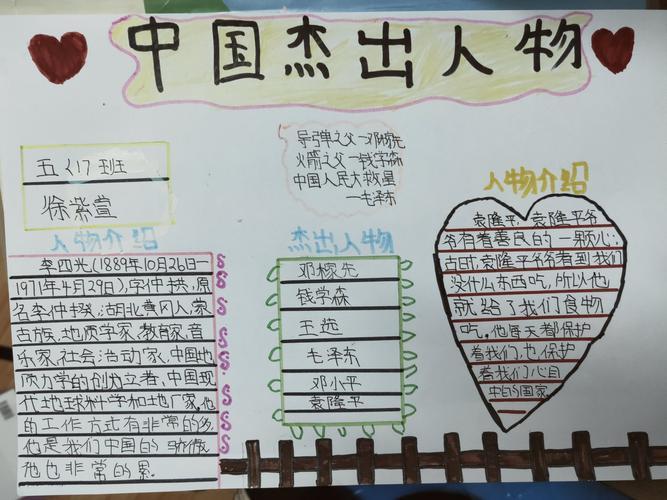 中国杰出人物
五〈1〉班
徐紫萱
导弹之父一邓稼先
火箭之父一钱学森
中国人民大救星
一毛泽东
人物介绍
李四光(1889年10月26日一
1971年4月29日),字仲拱,原
名李仲揆,湖北黄冈人,蒙
古族,地质学家,教育家,音
乐家,社会活动家,中国地
质力学的创立者,中国现
代地球科学和地厂家,他
的工作方式有非常的多
他是我们中国的骄傲
他也非常的累.
杰出人物
邓稼先
钱学森
王选
毛泽东
邓小平
袁隆平
人物介绍
袁隆平,袁隆平爷
爷有着善良的一颗心;
古时,袁隆平爷爷看到我们
没什么东西吃,所以他
就给了我们食物
吃。他每天都保护
着我们,也保护
着我们心目
中的国家.